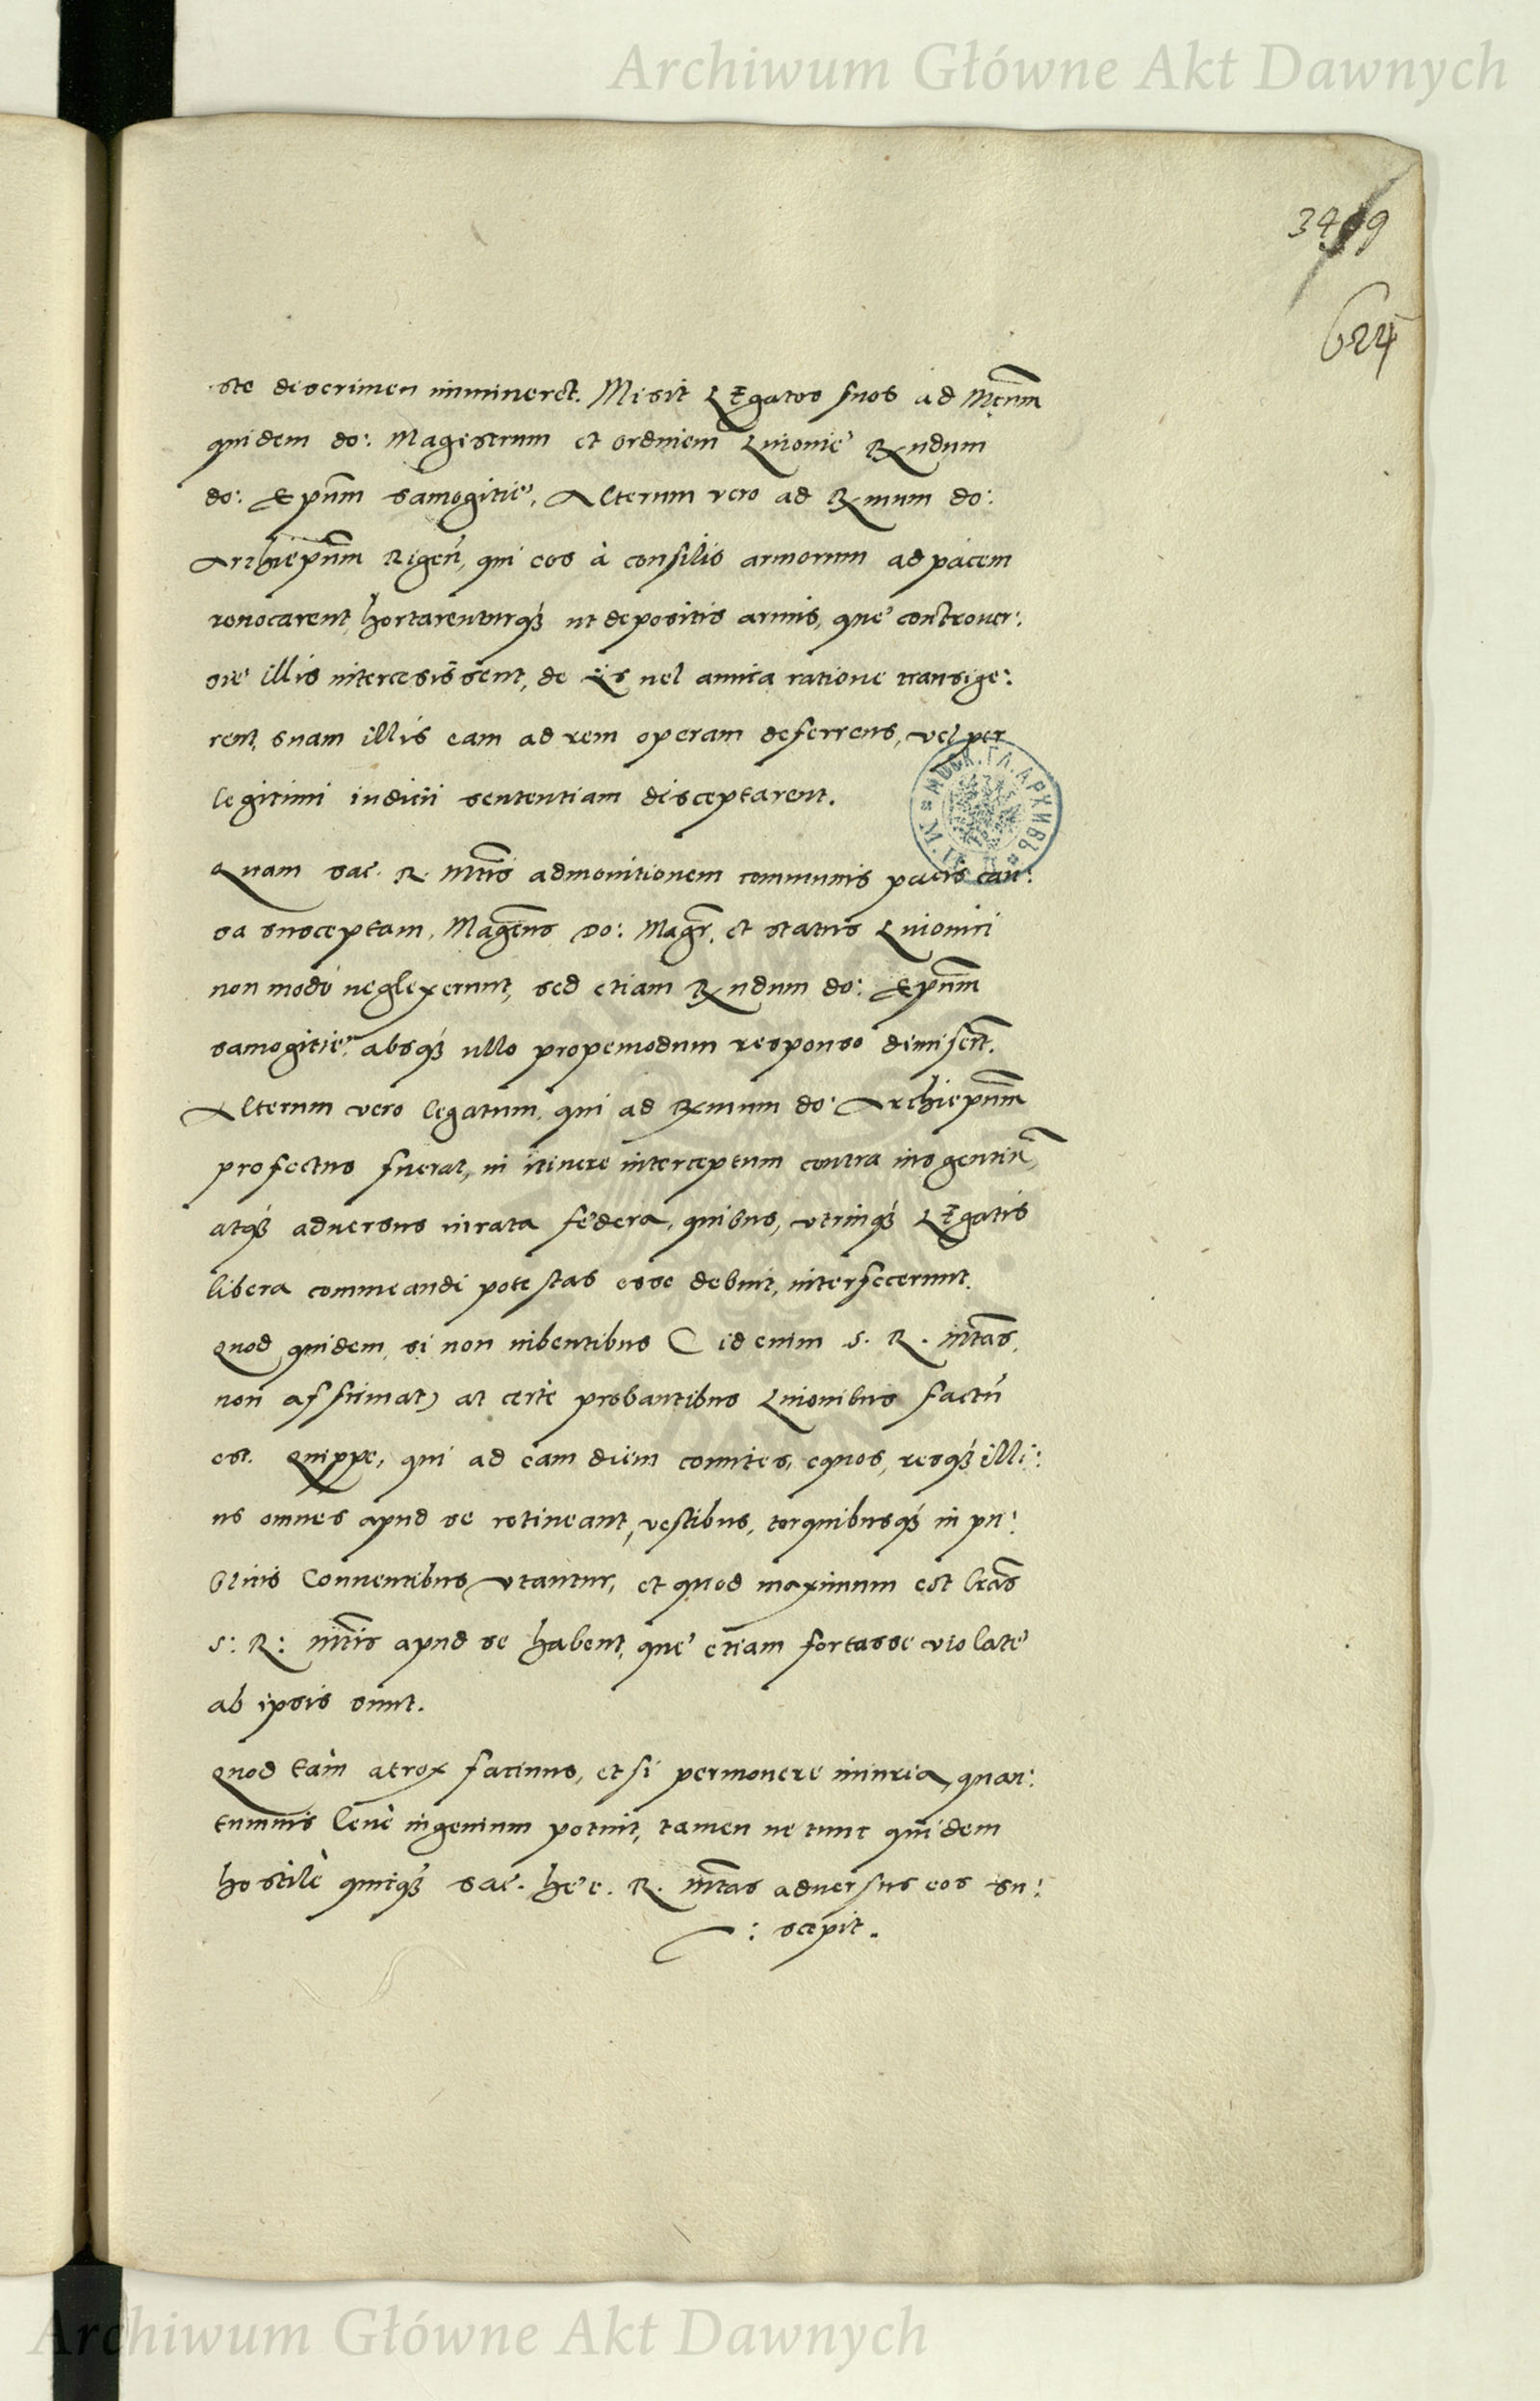 Archiwum Główne Akt Dawnych
3419
624
ste discrimen immineret. Misit Legatos suos ad Mcum̄
quidem do: Magistrum et ordinem Liuonie Rxndum
do: Epūm Samogitie, Alterum vero ad Rxmum do:
Archiepūm Rigeń, qui eos à consilio armorum ad pacem
reuocarent, hortarenturq́ꝫ ut depositis armis, que controuer:
sie illis intercessissent, de ijs uel amica ratione transige:
rent, suam illis eam ad rem operam deferrens, vel per
legitimi iudicii sententiam disceptarent.
МОСК. ГЛ. АРХИВЪ
Quam sac. R. Mt̄is admonitionem communis pacis cau:
sa susceptam, Magcus Do: Magr̄, et status Liuonici
non modo neglexerunt, sed etiam Rxndum do: Epūm
Samogitie absq́ꝫ ullo propemodum responso dimiser̄t.
Alterum vero legatum, qui ad Rxmum do: Archiepūm
profectus fuerat, in itinere interceptum contra ius gentiū,
atq́ꝫ aduersus iurata federa, quibus, vtrinq́ꝫ Legatis
libera commeandi potestas esse debuit, interfecerunt.
Quod quidem, si non iubentibus (id enim S. R. Mt̄as,
non affirmat) at certè probantibus Liuonibus factū
est. Quippe, qui ad eam diem comites, equos, resq́ꝫ illi:
us omnes apud se retineant, vestibus, torquibusq́ꝫ in pu:
blicis Conuentibus vtantur, et quod maximum est l̄ras
S: R: Mt̄is apud se habent, que etiam fortasse violate
ab ipsis sunt.
Quod tam atrox facinus, etsi permouere iniuria, quan:
tumuis leue ingenium potuit, tamen ne tunc quidem
hostile quicq́ꝫ sac. hec. R. Mt̄as aduersus eos su:
: scepit.
Archiwum Główne Akt Dawnych